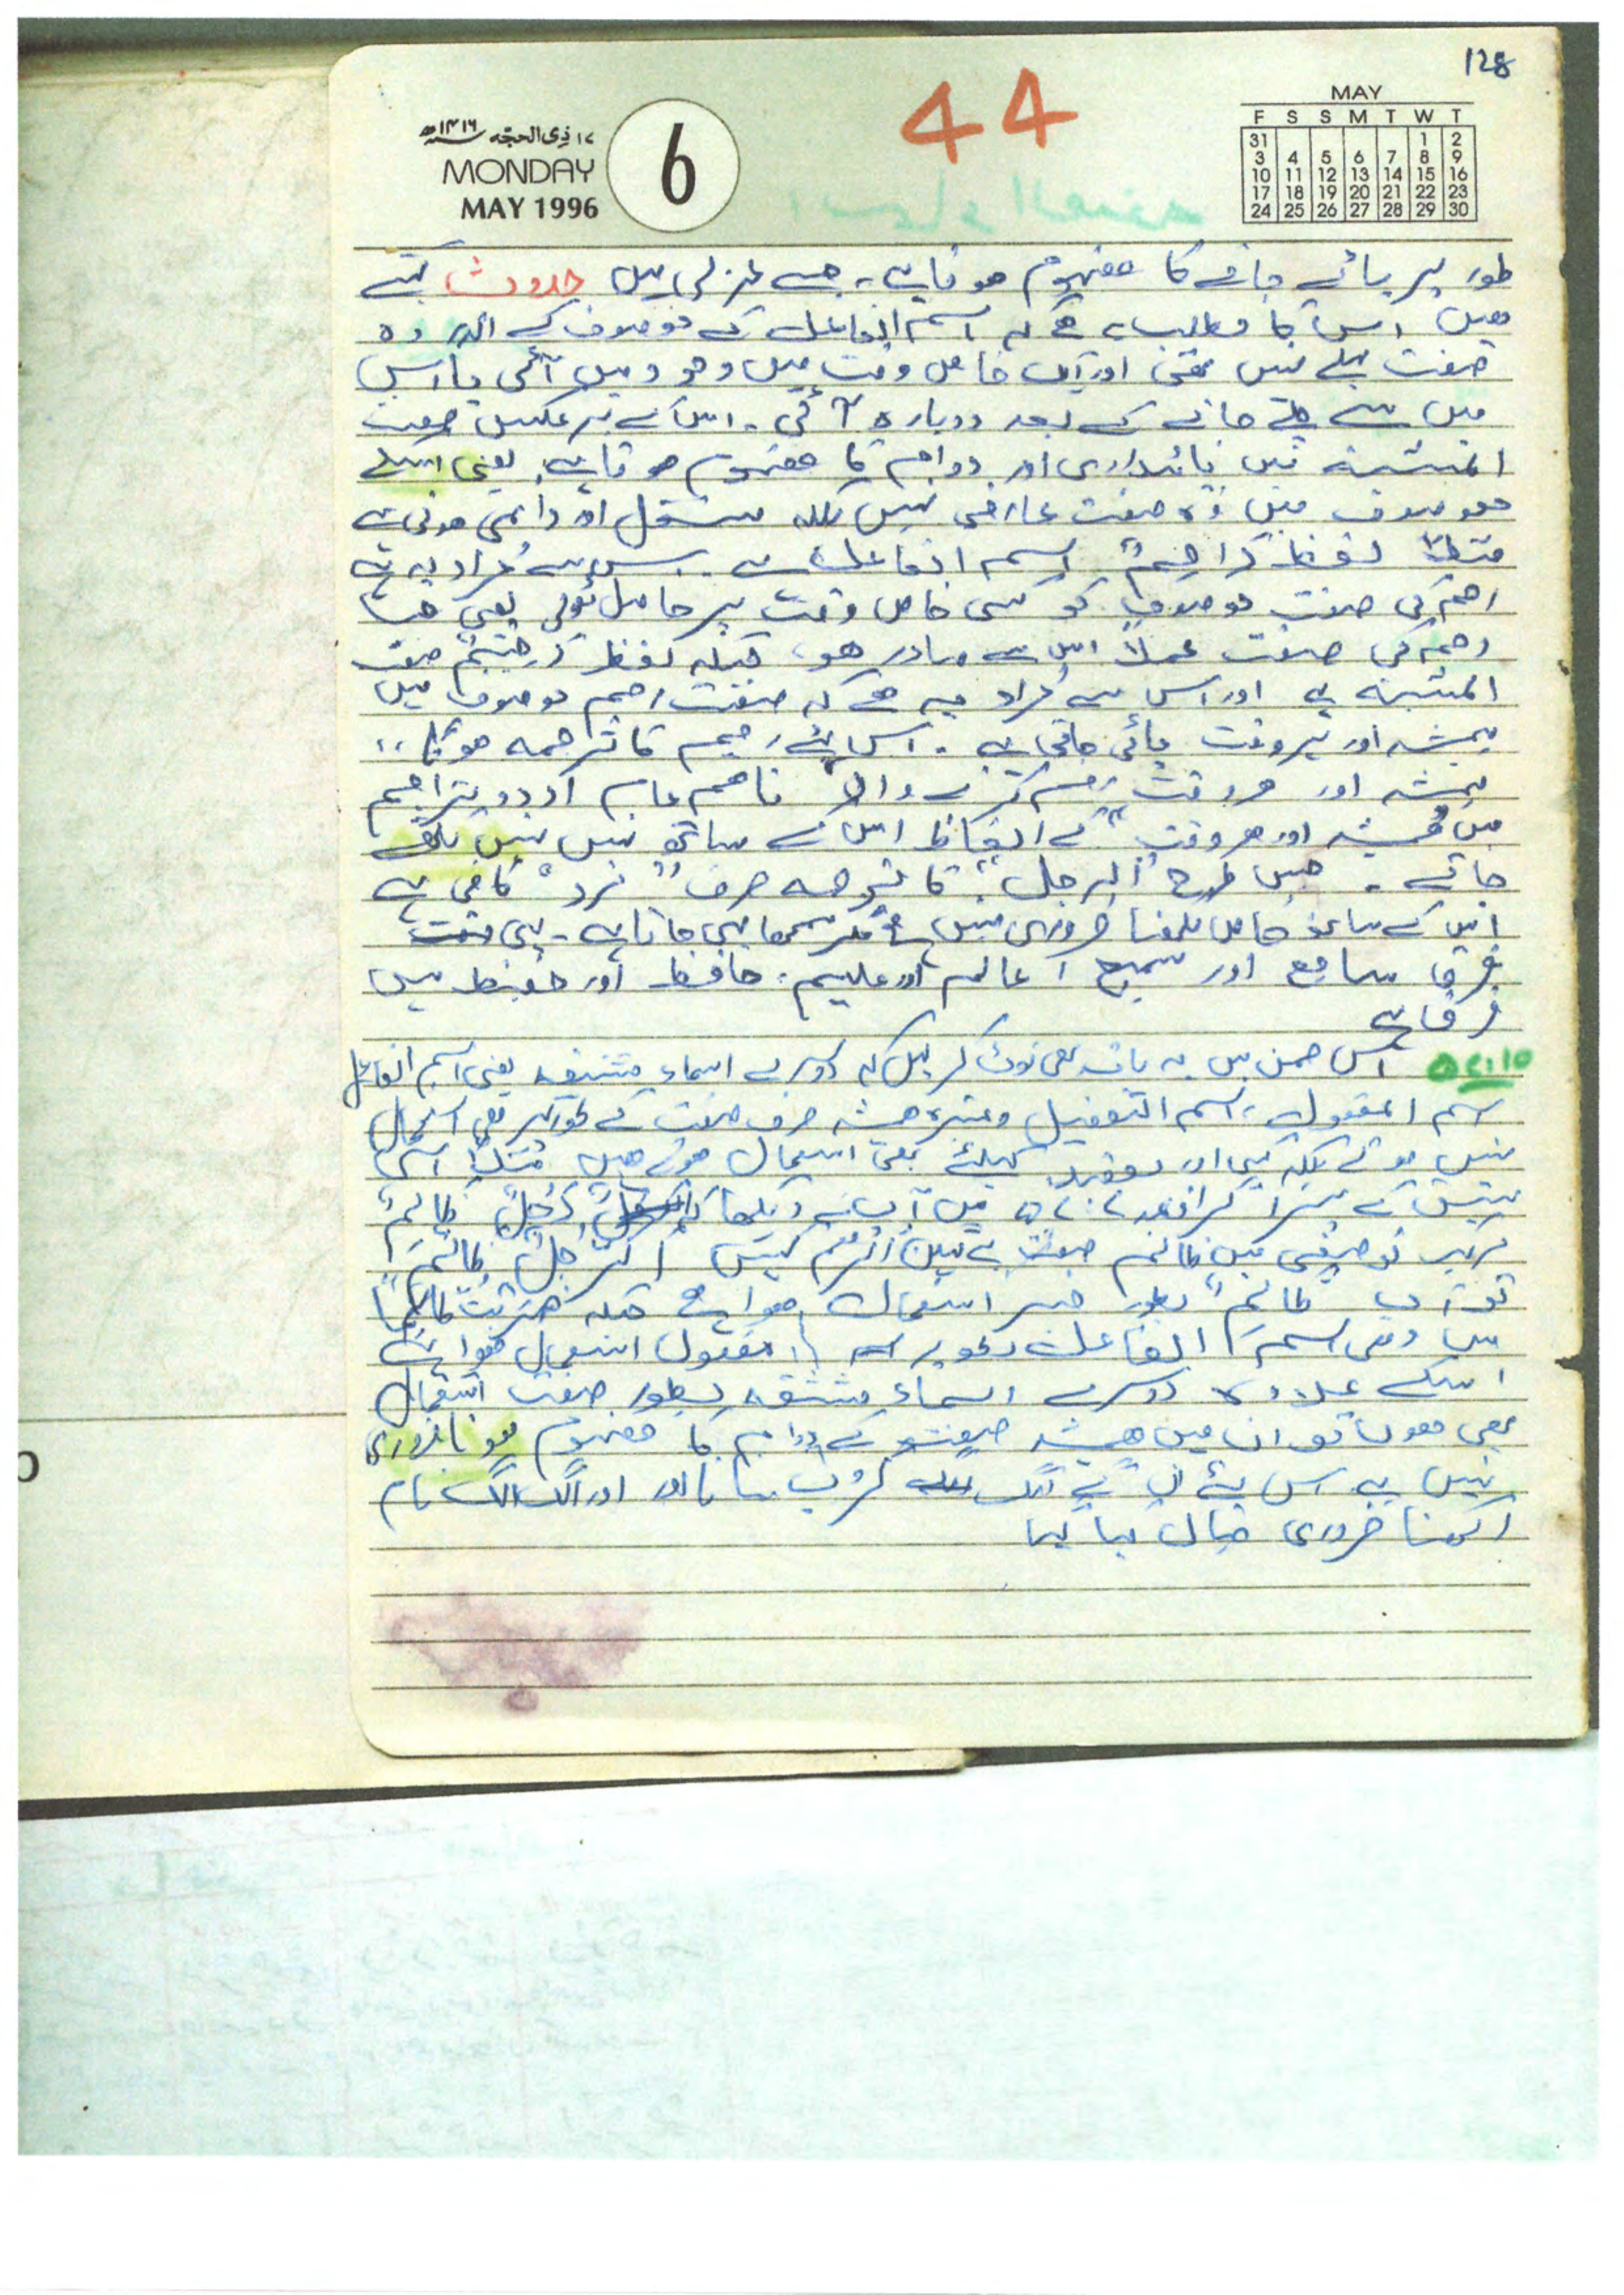 128
44
۱۷ ذی الحجہ سنہ ۱۴۱۶ھ
MONDAY
MAY 1996
6
MAY
F S S M T W T
31 1 2
3 4 5 6 7 8 9
10 11 12 13 14 15 16
17 18 19 20 21 22 23
24 25 26 27 28 29 30
طور پر پائے جانے کا مفہوم ہوتا ہے۔ جسے عربی میں حدوث کہتے
ہیں اس کا مطلب ہے کہ اسم الفاعل کے موصوف کے اندر وہ
صفت پہلے نہیں تھی اور اب خاص وقت میں وجود میں آئی یا اس
میں سے چلے جانے کے بعد دوبارہ آ گئی۔ اس کے برعکس صفت
المشبہ میں پائیداری اور دوام کا مفہوم ہوتا ہے۔ یعنی اسکے
موصوف میں وہ صفت عارضی نہیں بلکہ مستقل اور دائمی ہوتی ہے
مثلاً لفظ رَاحِمٌ اسم الفاعل ہے۔ اس سے مراد یہ ہے
رحم کی صفت موصوف کو کسی خاص وقت پر حاصل ہوئی یعنی جب
رحم کی صفت عملاً اس سے صادر ہو، جبکہ لفظ رَحِیْمٌ صفت
المشبہ ہے اور اس سے مراد یہ ہے کہ صفت رحم موصوف میں
ہمیشہ اور ہر وقت پائی جاتی ہے۔ اس لئے رحیم کا ترجمہ ہوگا "
ہمیشہ اور ہر وقت رحم کرنے والا" تاہم عام اردو تراجم
میں "ہمیشہ اور ہر وقت" کے الفاظ اس کے ساتھ نہیں لکھے
جاتے۔ جس طرح "الرجل" کا ترجمہ صرف "مرد" کافی ہے
اس کے ساتھ خاص لکھنا ضروری نہیں مگر سمجھا یہی جاتا ہے۔ یہی
فرق سامع اور سمیع، عالم اور علیم، حافظ اور حفیظ میں
فرق ہے
۵۲:۱۵ اس ضمن میں یہ بات بھی نوٹ کر لیں کہ دوسرے اسماء مشتقہ یعنی اسم الفاعل
اسم المفعول، اسم التفضیل وغیرہ ہمیشہ صرف صفت کے طور پر ہی استعمال
نہیں ہوتے بلکہ کسی اور مقصد کیلئے بھی استعمال ہوتے ہیں مثلاً اسی
سبق کے پیرا گراف میں آپ نے دیکھا کہ رَجُلٌ ظَالِمٌ
مرکب توصیفی میں ظالم صفت ہے لیکن اگر ہم کہیں اَلرَّجُلُ ظَالِمٌ
تو اب ظَالِمٌ بطور خبر استعمال ہوا ہے جبکہ ضَرَبْتُ ظَالِمًا
میں وہی اسم الفاعل بطور مفعول استعمال ہوا ہے
اسکے علاوہ دوسرے اسماء مشتقہ بطور صفت استعمال
بھی ہوں تو ان میں ہمیشہ صفت کے دوام کا مفہوم ہونا ضروری
نہیں ہے اس لئے ان کے الگ گروپ بنانا اور الگ الگ نام
رکھنا ضروری خیال کیا گیا